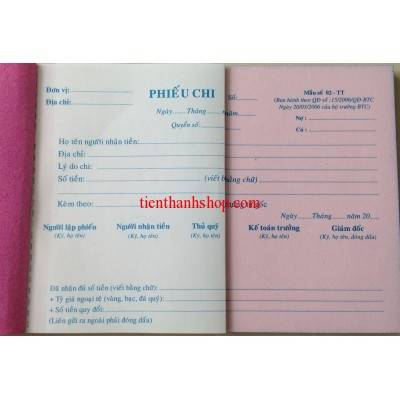 Đơn vị:
Địa chỉ:
PHIẾU CHI
Ngày......Tháng......năm......
Quyển số:
Số:
Mẫu số 02 - TT
(Ban hành theo QĐ số : 15/2006/QĐ-BTC
Ngày 20/03/2006 của bộ trưởng BTC)
Nợ :
Có :
Họ tên người nhận tiền:
Địa chỉ:
Lý do chi:
Số tiền: (viết bằng chữ)
Kèm theo: gốc
tienthanhshop.com
Ngày......Tháng......năm 20......
Người lập phiếu Người nhận tiền Thủ quỹ Kế toán trưởng Giám đốc
(Ký, họ tên) (Ký, họ tên) (Ký, họ tên) (Ký, họ tên) (Ký, họ tên, đóng dấu)
Đã nhận đủ số tiền (viết bằng chữ):
+ Tỷ giá ngoại tệ (vàng, bạc, đá quý):
+ Số tiền quy đổi:
(Liên gửi ra ngoài phải đóng dấu)